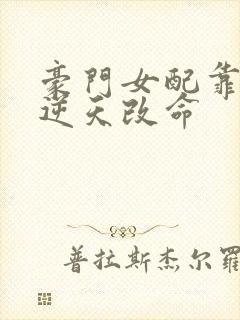 豪門女配靠
逆天改命
普拉斯杰尔羅